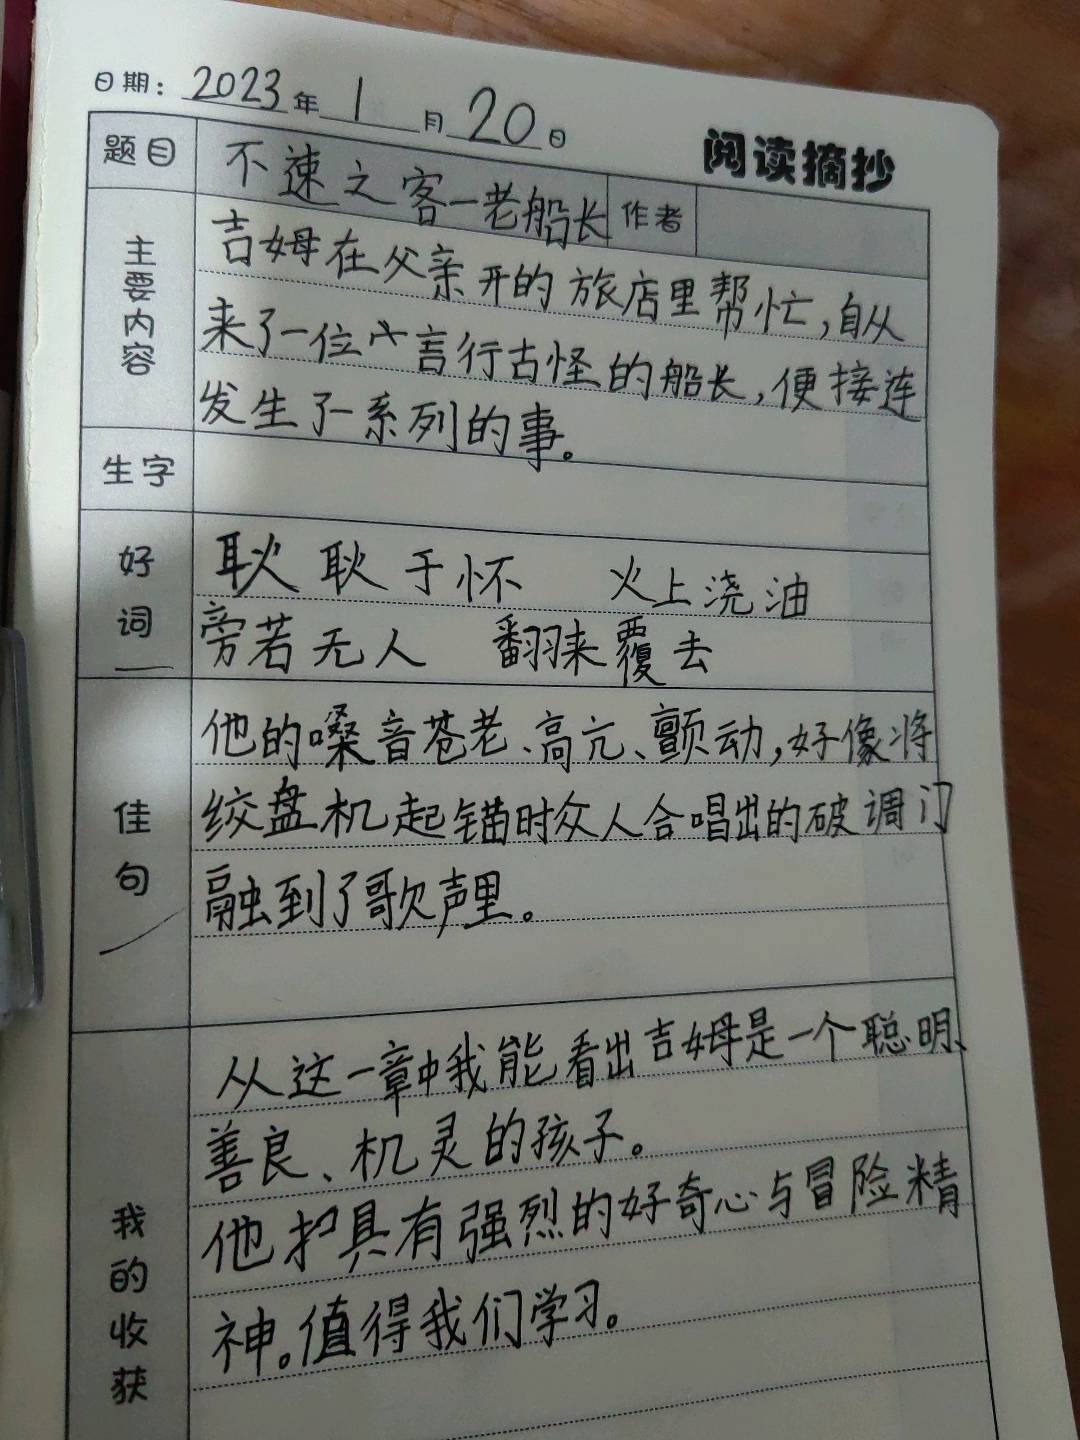 日期：2023年1月20日
阅读摘抄
题目 不速之客一老船长 作者
主要内容
吉姆在父亲开的旅店里帮忙，自从
来了一位言行古怪的船长，便接连
发生了一系列的事。
生字
好词
耿耿于怀 火上浇油
旁若无人 翻来覆去
佳句
他的嗓音苍老、高亢、颤动，好像将
绞盘机起锚时众人合唱出的破调门
融到了歌声里。
我的收获
从这一章中我能看出吉姆是一个聪明、
善良、机灵的孩子。
他具有强烈的好奇心与冒险精
神。值得我们学习。